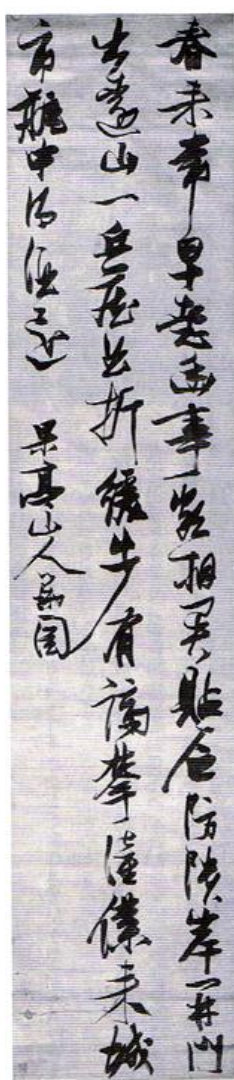 春来常早起幽事頗相関貼石防隤岸開林
出遠山一丘蔵曲折緩步有躋攀僮僕来城
市瓶中得酒還 果亭山人